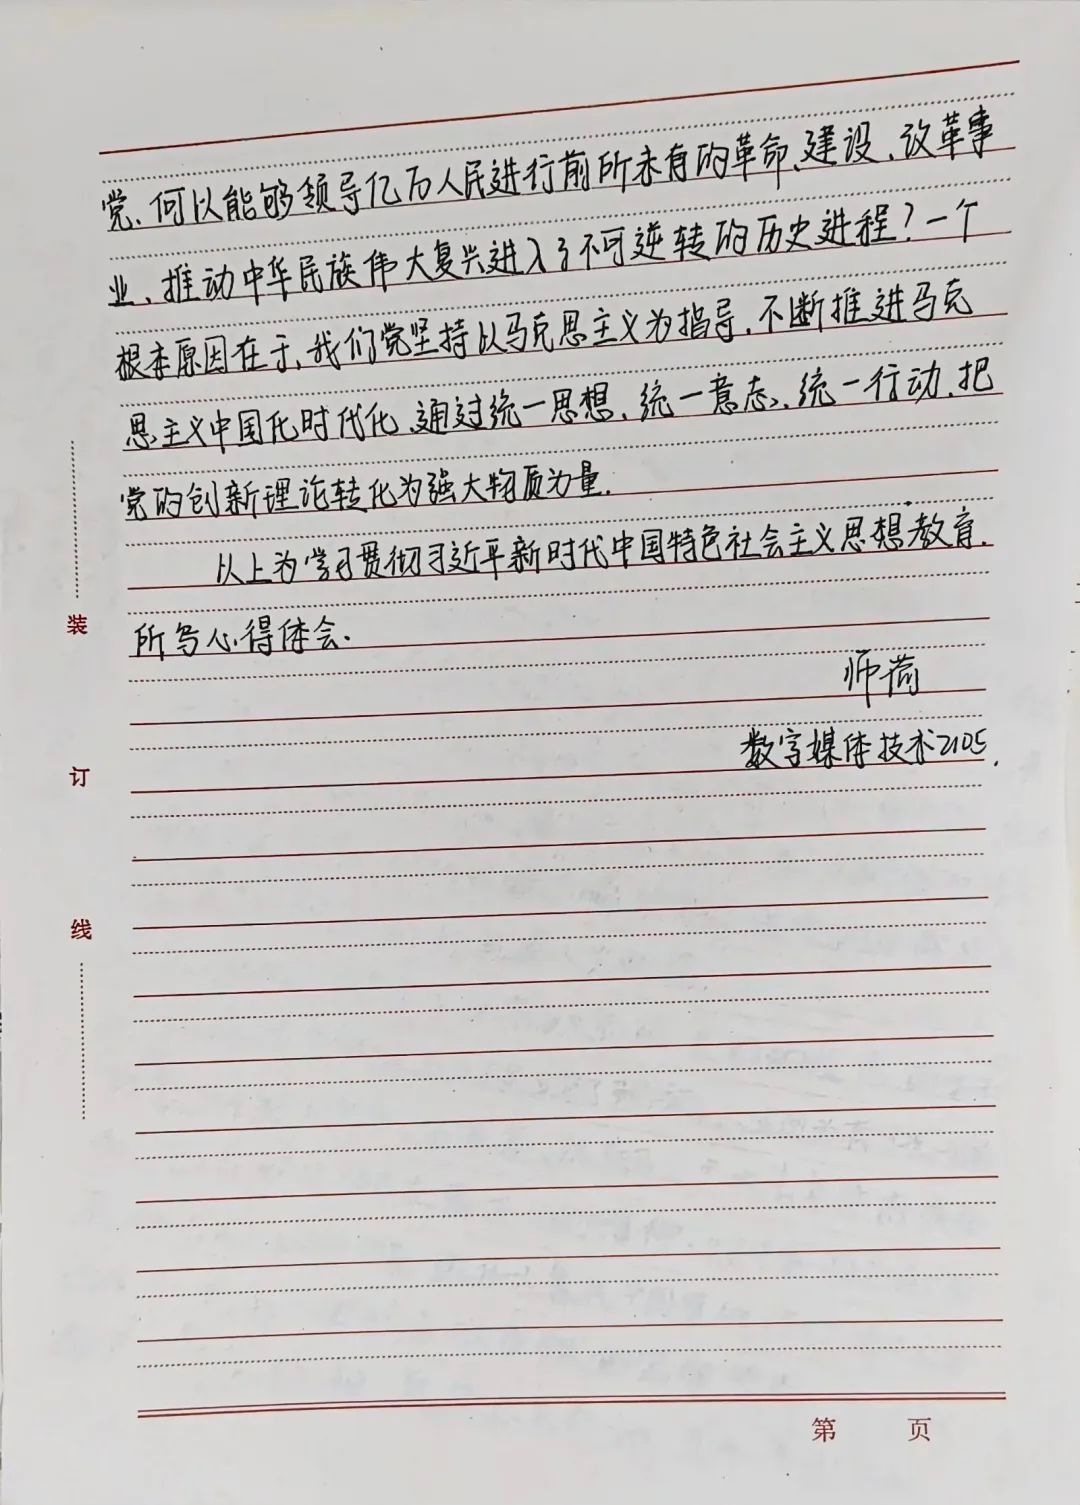 党、何以能够领导亿万人民进行前所未有的革命、建设、改革事
业、推动中华民族伟大复兴进入了不可逆转的历史进程？一个
根本原因在于、我们党坚持以马克思主义为指导、不断推进马克
思主义中国化时代化、通过统一思想、统一意志、统一行动、把
党的创新理论转化为强大物质力量.
以上为学习贯彻习近平新时代中国特色社会主义思想教育.
所写心得体会.
师荷
数字媒体技术2105.
装
订
线
第 页